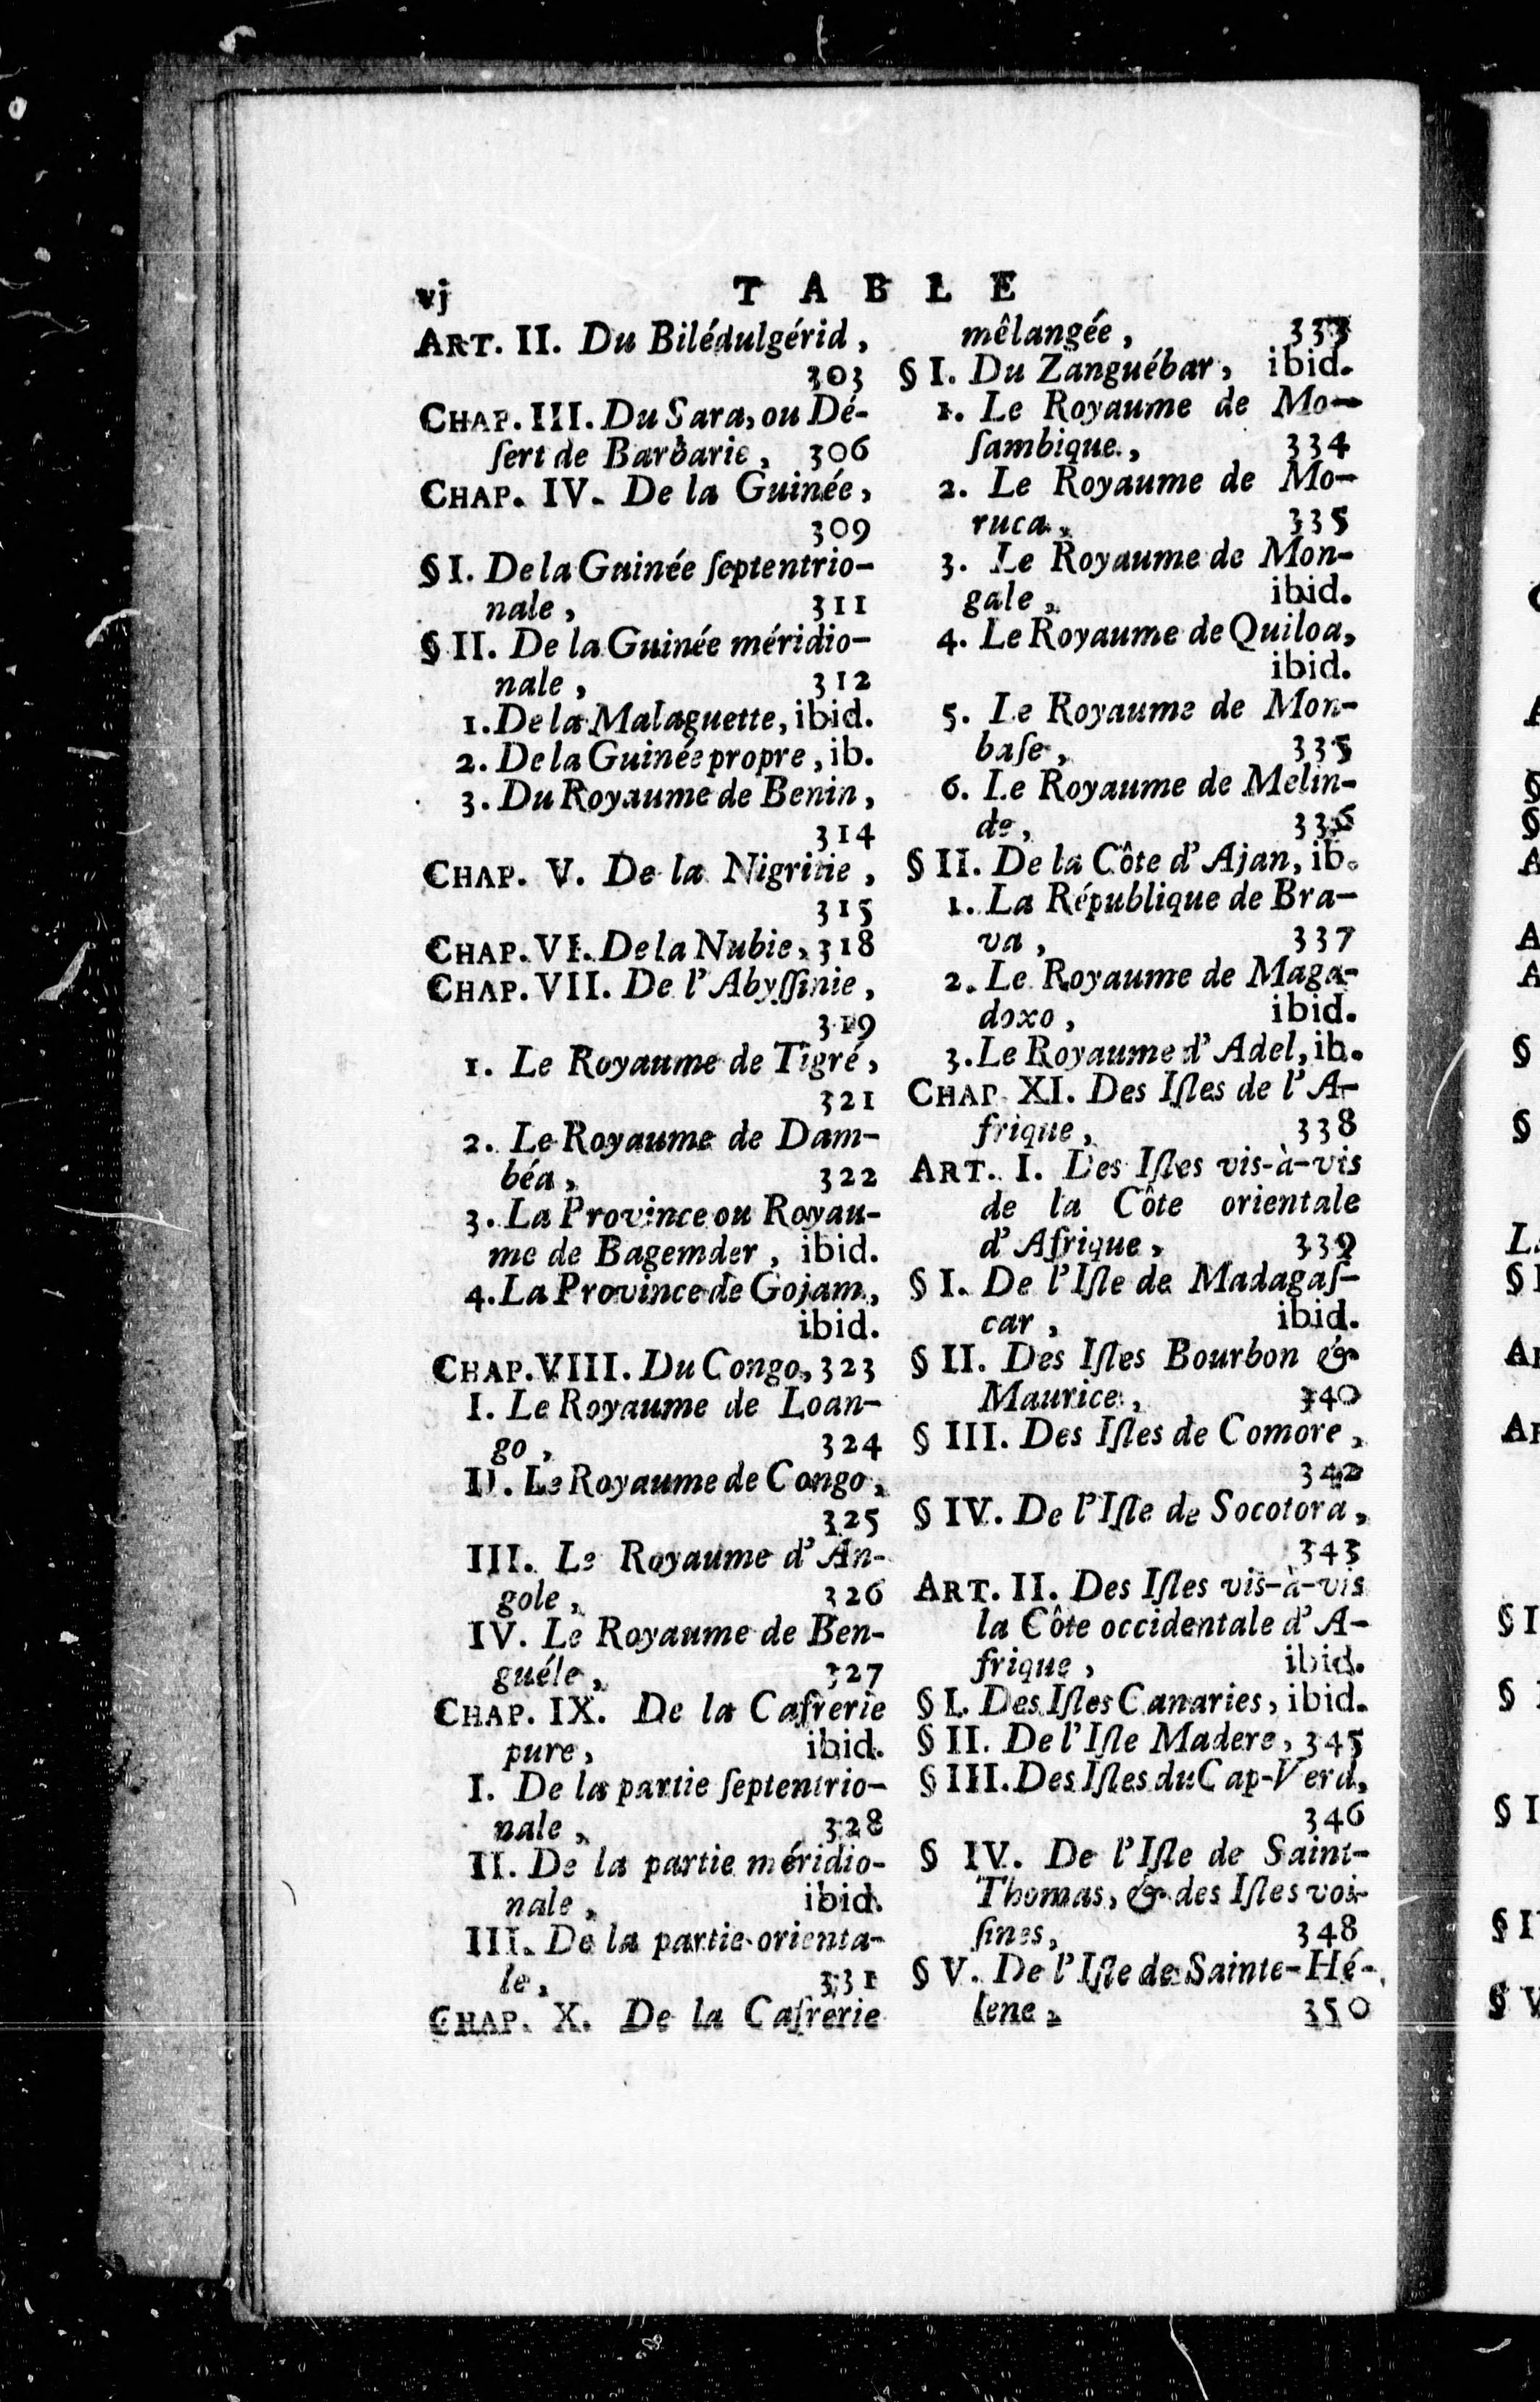 vj
T A B L E
ART. II. Du Bilédulgérid,
303
CHAP. III. Du Sara, ou Dé-
ſert de Barbarie, 306
CHAP. IV. De la Guinée,
309
§ I. De la Guinée ſeptentrio-
nale, 311
§ II. De la Guinée méridio-
nale, 312
1. De la Malaguette, ibid.
2. De la Guinée propre, ib.
3. Du Royaume de Benin,
314
CHAP. V. De la Nigritie,
315
CHAP. VI. De la Nubie, 318
CHAP. VII. De l'Abyſſinie,
319
1. Le Royaume de Tigré,
321
2. Le Royaume de Dam-
béa, 322
3. La Province ou Royau-
me de Bagemder, ibid.
4. La Province de Gojam,
ibid.
CHAP. VIII. Du Congo, 323
I. Le Royaume de Loan-
go, 324
II. Le Royaume de Congo,
325
III. Le Royaume d'An-
gole, 326
IV. Le Royaume de Ben-
guéle, 327
CHAP. IX. De la Cafrerie
pure, ibid.
I. De la partie ſeptentrio-
nale, 328
II. De la partie méridio-
nale, ibid.
III. De la partie orienta-
le, 331
CHAP. X. De la Cafrerie
mêlangée, 333
§ I. Du Zanguébar, ibid.
1. Le Royaume de Mo-
ſambique, 334
2. Le Royaume de Mo-
ruca, 335
3. Le Royaume de Mon-
gale, ibid.
4. Le Royaume de Quiloa,
ibid.
5. Le Royaume de Mon-
baſe, 335
6. Le Royaume de Melin-
de, 336
§ II. De la Côte d'Ajan, ib.
1. La République de Bra-
va, 337
2. Le Royaume de Maga-
doxo, ibid.
3. Le Royaume d'Adel, ib.
CHAP. XI. Des Iſles de l'A-
frique, 338
ART. I. Des Iſles vis-à-vis
de la Côte orientale
d'Afrique, 339
§ I. De l'Iſle de Madagaſ-
car, ibid.
§ II. Des Iſles Bourbon &
Maurice, 340
§ III. Des Iſles de Comore,
342
§ IV. De l'Iſle de Socotora,
343
ART. II. Des Iſles vis-à-vis
la Côte occidentale d'A-
frique, ibid.
§ I. Des Iſles Canaries, ibid.
§ II. De l'Iſle Madere, 345
§ III. Des Iſles du Cap-Verd,
346
§ IV. De l'Iſle de Saint-
Thomas, & des Iſles voi-
ſines, 348
§ V. De l'Iſle de Sainte-Hé-
lene, 350